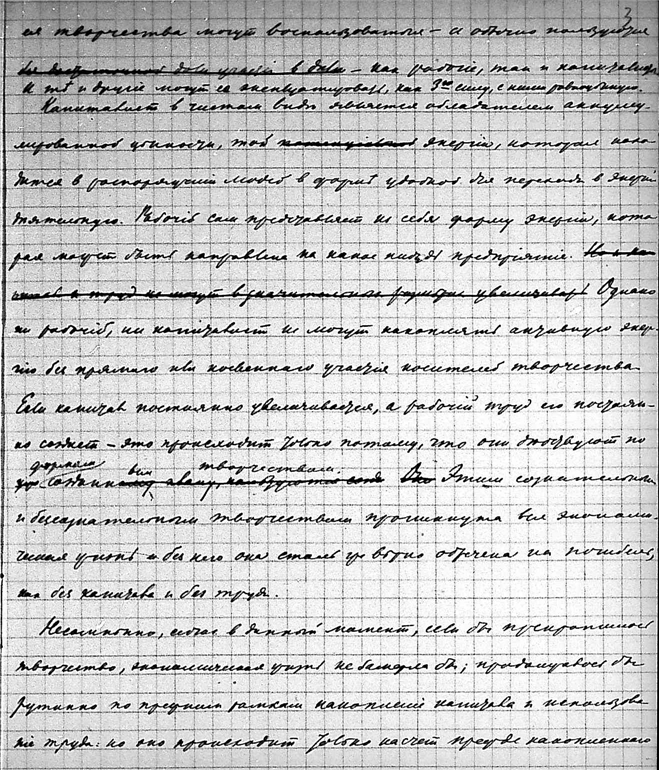 3
ея творчества могут воспользоваться — а обычно пользуются
для достаточной доли участiя в даль — как рабочiе, так и капиталисты
И тѣ и другiе могут ее эксплуатировать, как 3ю силу, с ними равноцѣнную.
Капиталист в чистом видѣ является обладателем аккуму-
лированной цѣнности, той потенцiальной энергiи, которая нахо-
дится в распоряженiи людей в формѣ удобной для перехода в энергiю
дѣятельную. Рабочiй сам представляет из себя форму энергiи, кото-
рая может быть направлена на какое нибудь предпрiятiе. Но и ка-
питал и труд не могут в значительном размѣрѣ увеличивать Однако
ни рабочiй, ни капиталист не могут накоплять активную энер-
гiю без прямого или косвеннаго участiя носителей творчества.
Если капитал постоянно увеличивается, а рабочiй труд его постоян-
но создает — это происходит только потому, что они дѣйствуют по
формам
созданным творчеством. Этим сознательным
и безсознательным творчеством проникнута вся экономи-
ческая жизнь и без него она столь же вѣрно обречена на погибель,
как без капитала и без труда.
Несомнѣнно, сейчас в данный момент, если бы прекратилось
творчество, экономическая жизнь не замерла бы; продолжалось бы
рутинно по прежним рамкам накопленiе капитала и использова-
нiе труда: но оно происходит только насчет прежде накопленнаго